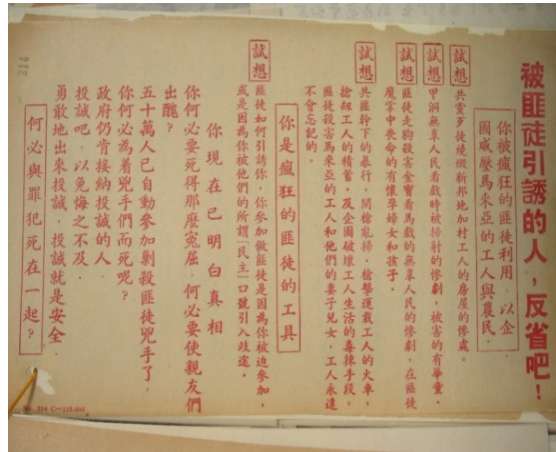 被匪徒引誘的人,反省吧!
你被瘋狂的匪徒利用,以企
圖威壓馬來亞的工人與農民.
試想 共黨歹徒燒燬新邦地加村工人的房屋的慘處.
試想 甲洞無辜人民看戲時被掃射的慘劇,被害的有華童.
試想 匪徒走狗殺害金寶看馬戲的無辜人民的慘劇,在匪徒
魔掌中喪命的有懷孕婦女和孩子.
試想 共匪幹下的暴行,開槍亂掃,槍擊運載工人的火車,
搶刼工人的積蓄,及企圖破壞工人生活的毒辣手段,
匪徒殺害馬來亞的工人和他們的妻子兒女,工人永遠
不會忘記的.
你是瘋狂的匪徒的工具
試想 匪徒如何引誘你,你參加做匪徒是因為你被迫參加,
或是因為你被他們的所謂「民主」口號引入歧途.
你現在已明白真相
你何必要死得那麽寃屈,何必要使親友們
出醜?
五十萬人已自動參加剿殺匪徒兇手了,
你何必為着兇手們而死呢?
政府仍肯接納投誠的人.
投誠吧,以免悔之不及.
勇敢地出來投誠,投誠就是安全.
何必與罪犯死在一起?